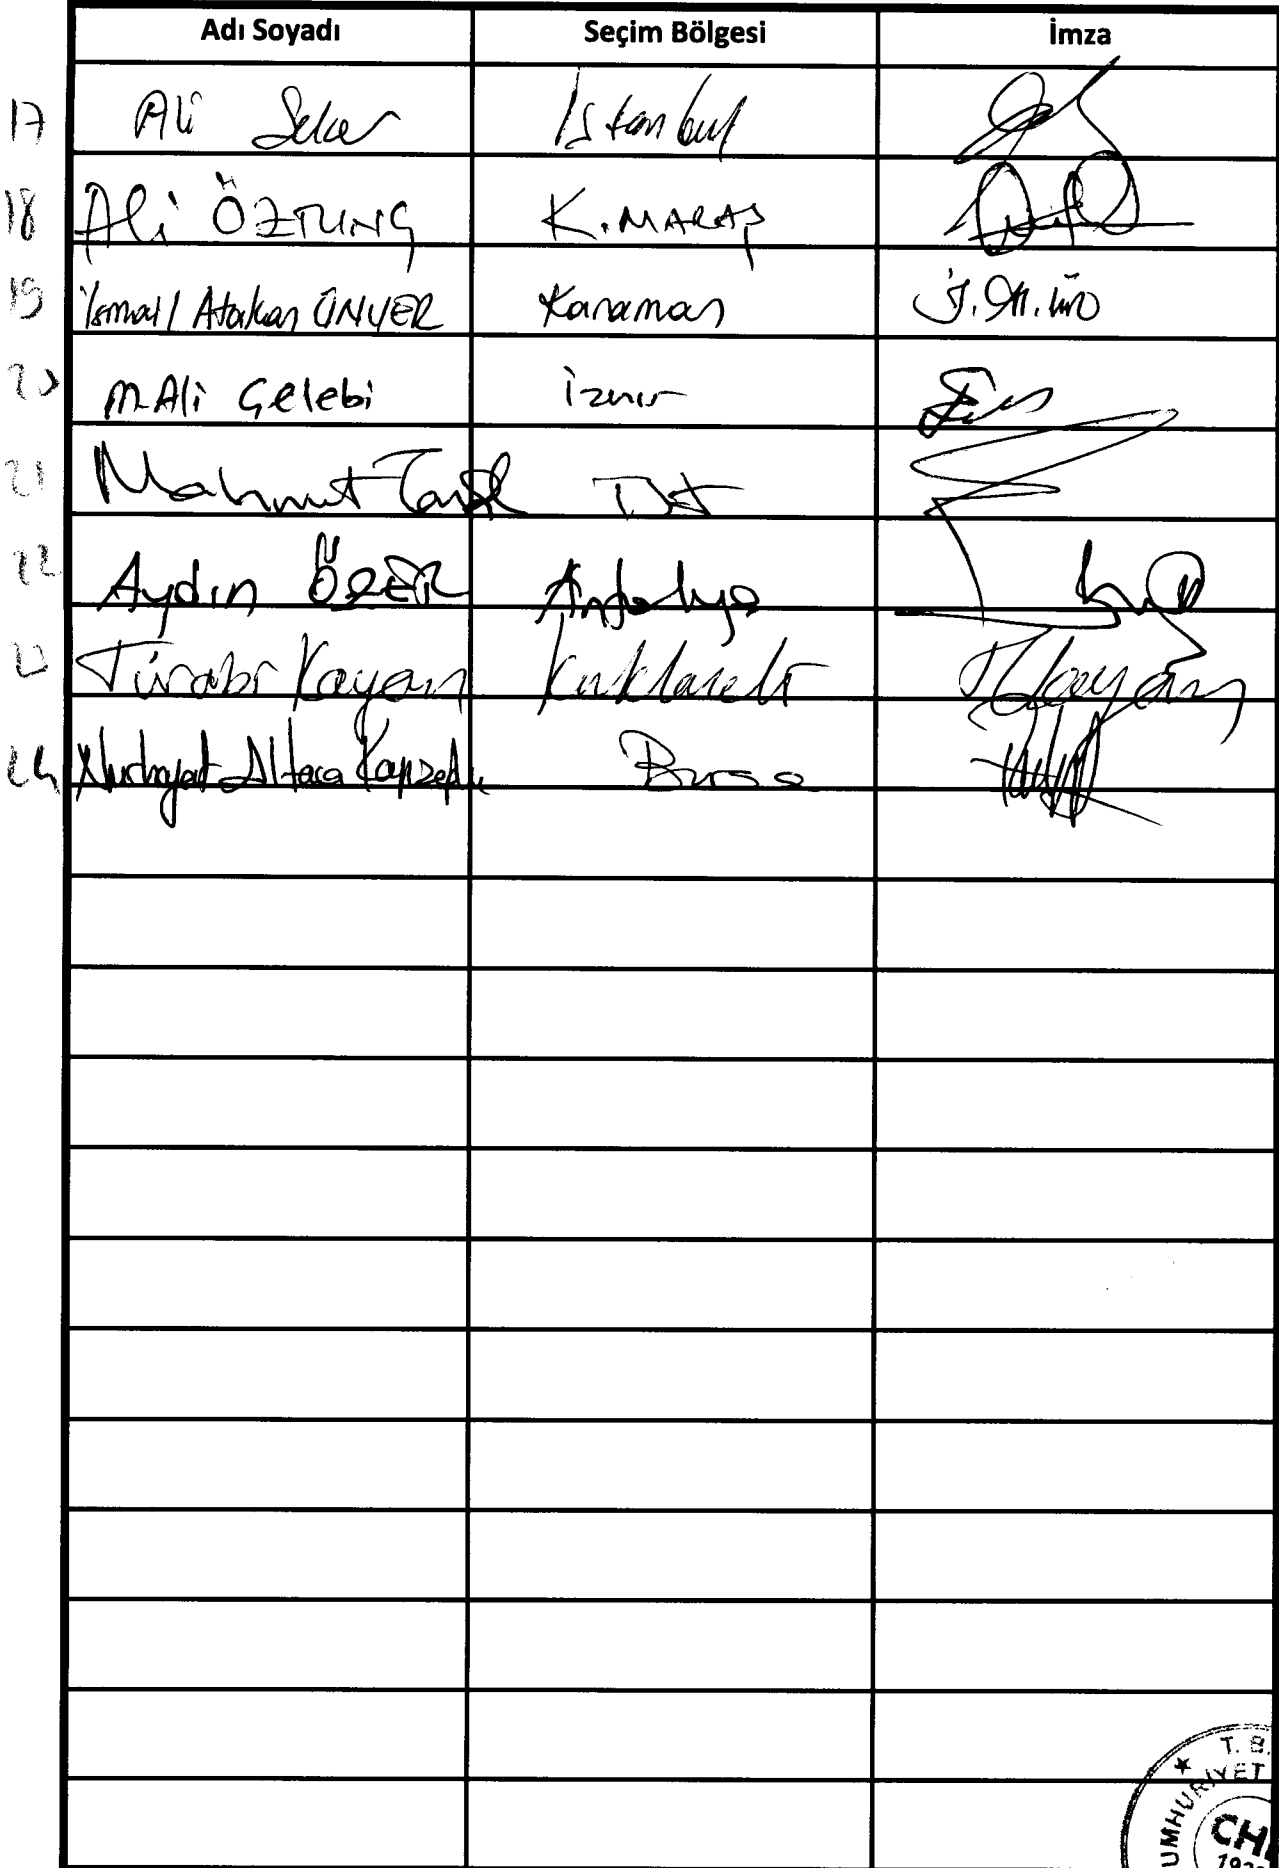 Adı Soyadı Seçim Bölgesi İmza
17 Ali Şeker İstanbul
18 Ali ÖZTUNÇ K.MARAŞ
19 İsmail Atakan ÜNVER Karaman İ.At.Ün
20 M.Ali Çelebi İzmir
21 Mahmut Tanal İst
22 Aydın ÖZER Antalya
23 Türabi Kayan Kırklareli T Kayan
24 Nurhayat Altaca Kayışoğlu Bursa
T. B.
★ CUMHURİYET
CH
192